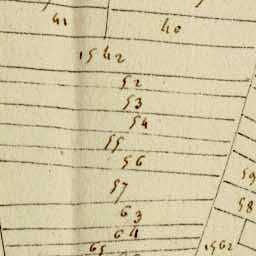 41 40
1542
52
53
54
55
56
57
59
58
63
64
65 1562